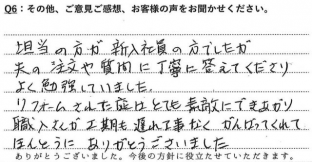 Q6：その他、ご意見ご感想、お客様の声をお聞かせください。
担当の方が新入社員の方でしたが
夫の注文や質問に丁寧に答えてくださり
よく勉強していました。
リフォームされた庭はとても素敵にできあがり
職人さんが工期も遅れる事なく がんばってくれて
ほんとうに ありがとうございました
ありがとうございました。今後の方針に役立たせていただきます。